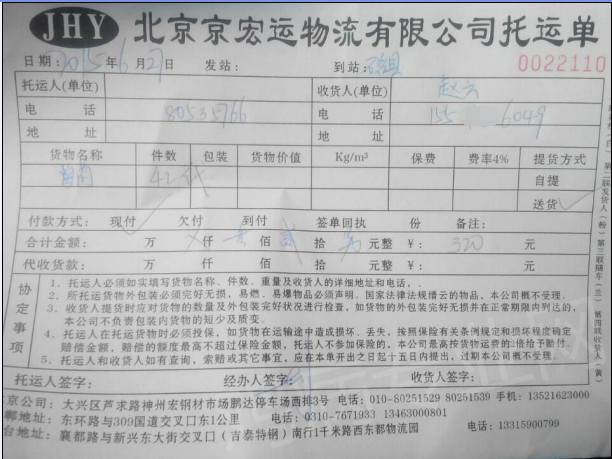 JHY 北京京宏运物流有限公司托运单
日期: 2015年6月27日 发站: 到站: 0022110
托运人(单位) 收货人(单位) 赵云
电 话 80535766 电 话 155 6049
地 址 地 址
货物名称 件数 包装 货物价值 Kg/m³ 保费 费率4% 提货方式
42 自提
送货
付款方式: 现付 欠付 到付 签单回执 份 备注:
合计金额: 万 仟 佰 拾 元整 ¥: 320 元
代收货款: 万 仟 佰 拾 元整 ¥: 元
协定事项
1、托运人必须如实填写货物名称、件数、重量及收货人的详细地址和电话,.
2、所托运货物外包装必须完好无损,易燃、易爆物品必须声明。国家法律法规缙云的物品,本公司概不受理.
3、收货人提货时应对货物的数量及外包装完好状况进行检查,如货物的外包装完好无损并在正常期限内到达的,
本公司不负责包装内货物的短少及质变.
4、托运人在托运货物时必须投保,如货物在运输途中造成损坏、丢失,按照保险有关条例规定和损坏程度确定
赔偿金额,赔偿的额度最高不超过保险金额,托运人不参加保险的,本公司最高按货物运费的2倍给予赔付.
5、托运人和收货人如有查询,索赔或其它事宜,应在本单开出之日起十五日内提出,过期本公司概不受理.
托运人签字: 经办人签字: 收货人签字:
京公司: 大兴区芦求路神州宏钢材市场鹏达停车场西排3号 电话: 010-80251529 80251539 手机: 13521623000
邯地址: 东环路与309国道交叉口东1公里 电话: 0310-7671933 13463000801
台地址: 襄都路与新兴东大街交叉口(吉泰特钢)南行1千米路西东都物流园 电话: 13315900799
第二联发货人(粉) 第三联随车(兰) 第四联收货人(黄)